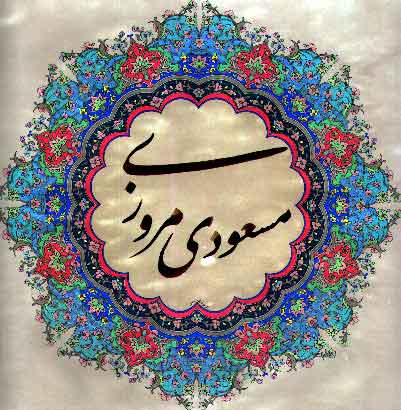 مسعودی مروزی